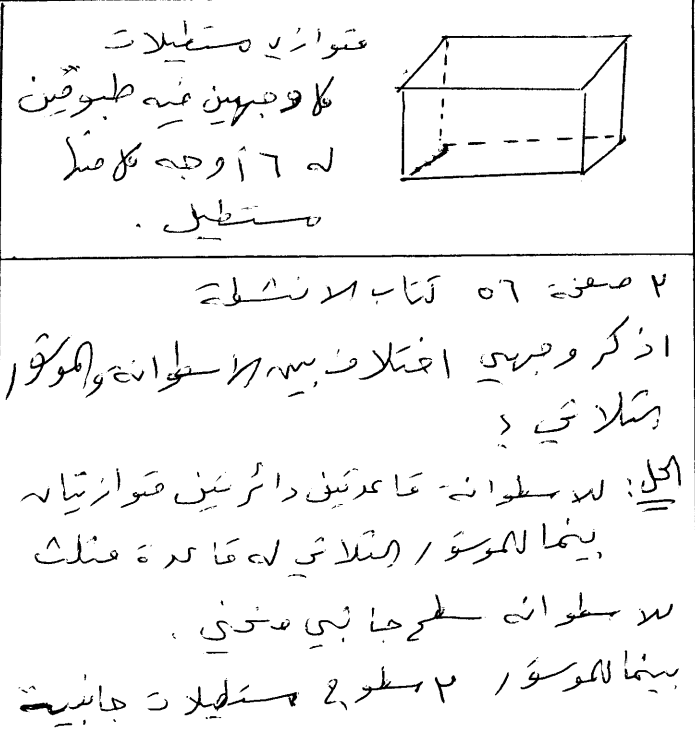 متوازي مستطيلات
كل وجهين فيه طبوقين
له ٦ أوجه كل منها
مستطيل .
٢ صفحة ٥٦ كتاب الانشطة
اذكر وجهي اختلاف بين الاسطوانة والموشور
الثلاثي ؟
الحل : للاسطوانة قاعدتين دائرتين متوازيتان
بينما للموشور الثلاثي له قاعدة مثلث
للاسطوانه سطح جانبي منحني .
بينما للموشور ٣ سطوح مستطيلات جانبية